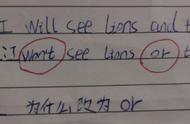 I Will see lions and t
: I won't see lions or t
为什么改为 or